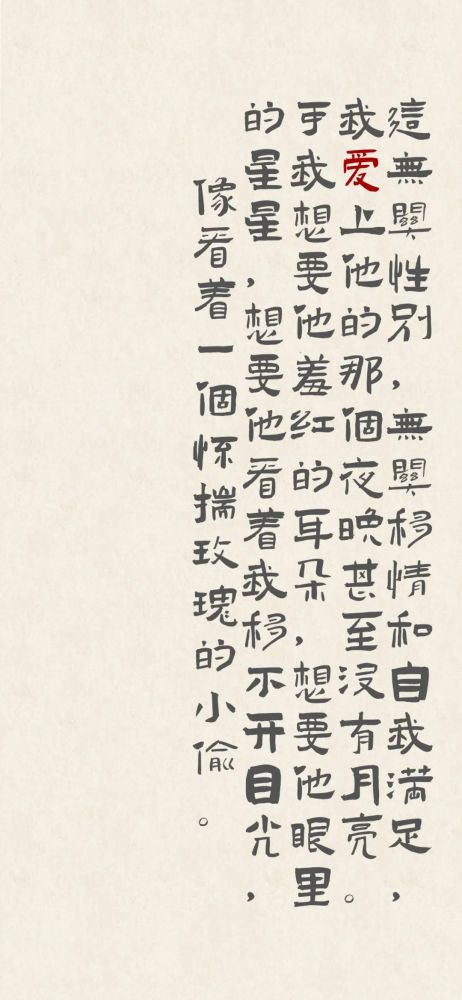 這無關性別,無關移情和自我滿足,
我爱上他的那個夜晚甚至没有月亮。
于我想要他羞红的耳朵,想要他眼里
的星星,想要他看着我移不开目光,
像看着一個怀揣玫瑰的小偷。